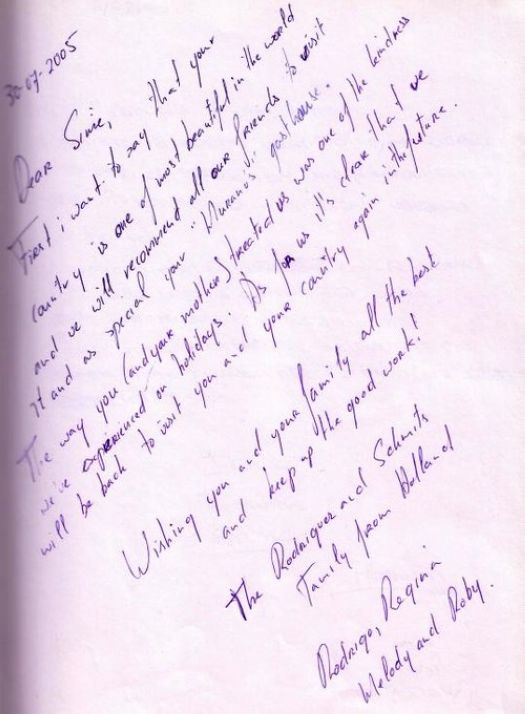 30-07-2005
Dear Sime,
First i want to say that your
country is one of most beautiful in the world
and we will recommend all our friends to visit
it and as special your "Murano's" gasthouse.
The way you (and your mother) treated us was one of the kindness
we've experienced on holidays. As for us it's clear that we
will be back to visit you and your country again in the future.
Wishing you and your family all the best
and keep up the good work!
The Rodriguez and Schmits
Family from Holland
Rodrigo, Regina
Melody and Roby.